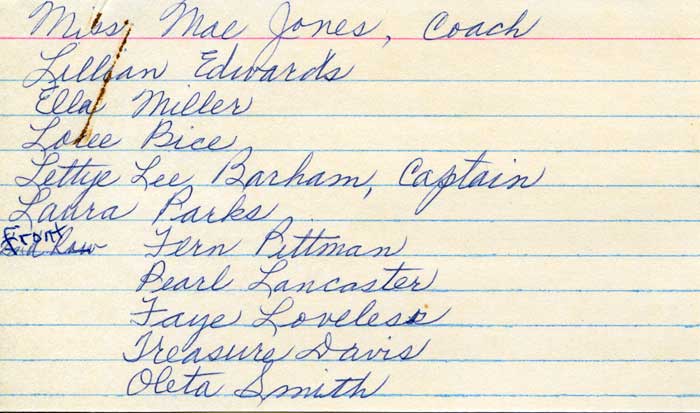 Miss Mae Jones, Coach
Lillian Edwards
Ella Miller
Loree Bice
Lettye Lee Barham, Captain
Laura Parks
Front
2nd Row Fern Pittman
Pearl Lancaster
Faye Loveless
Treasure Davis
Oleta Smith